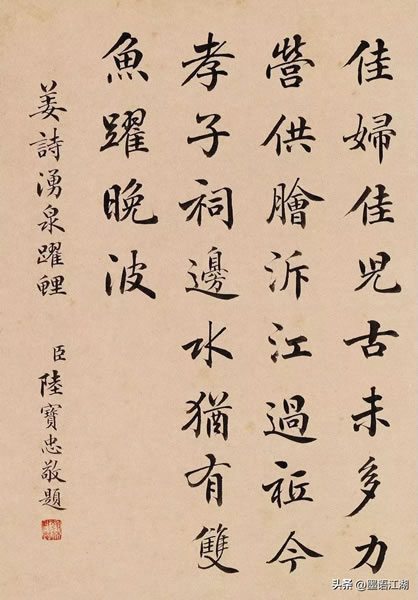 佳婦佳兒古未多力
營供膾泝江過祗今
孝子祠邊水猶有雙
魚躍晚波
姜詩湧泉躍鯉
臣陸寶忠敬題
头条 @墨语江湖